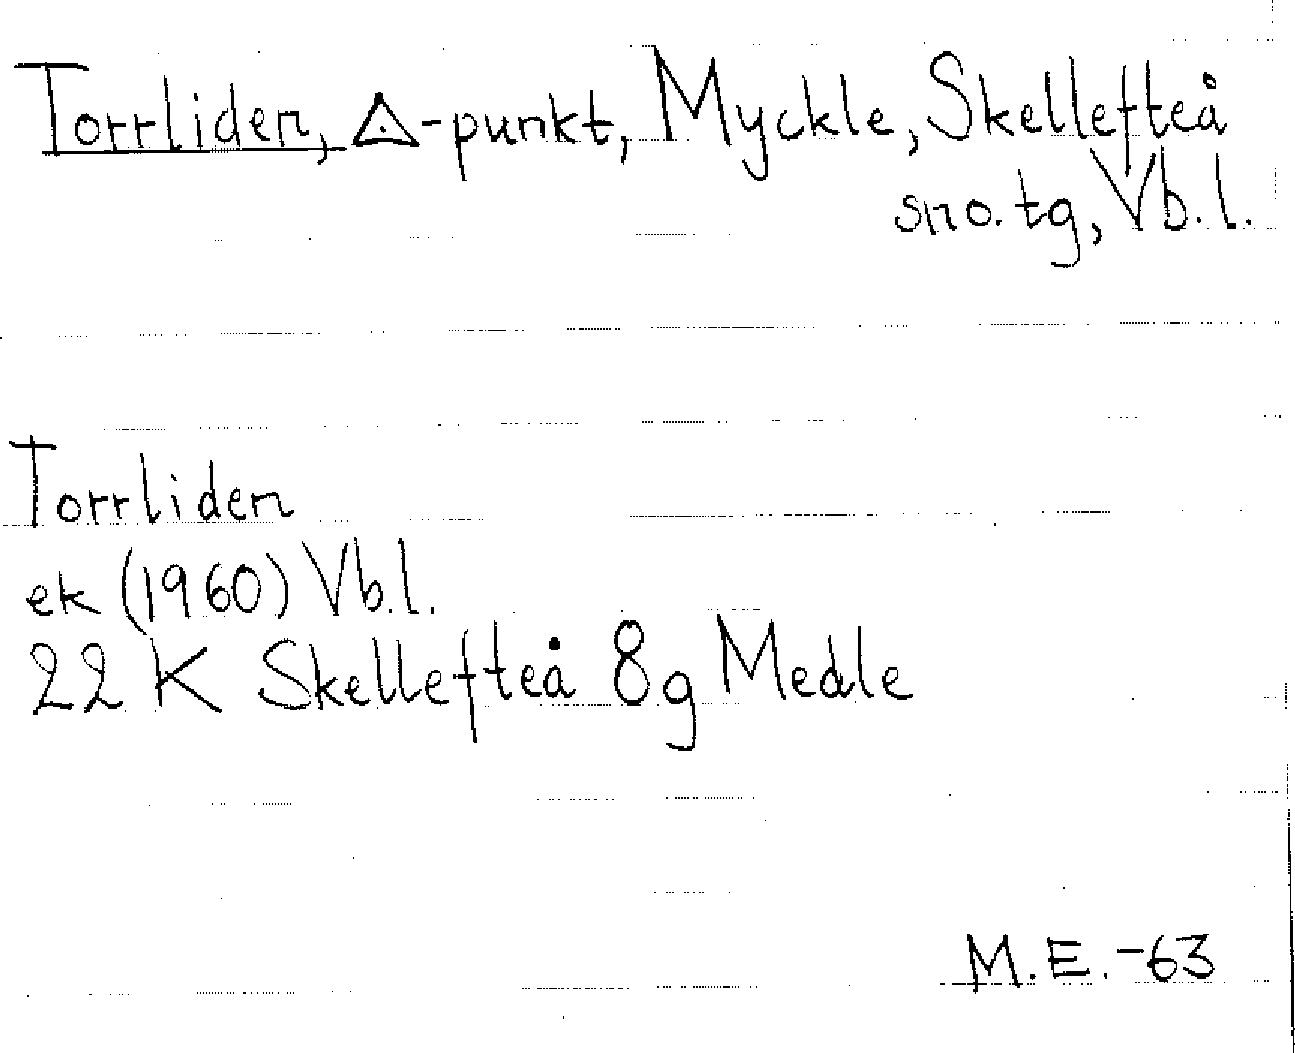 Torrliden, △-punkt, Myckle, Skellefteå
sno. tg, Vb.l.
Torrliden
ek (1960) Vb.l.
22 K Skellefteå 8g Medle
M.E.-63